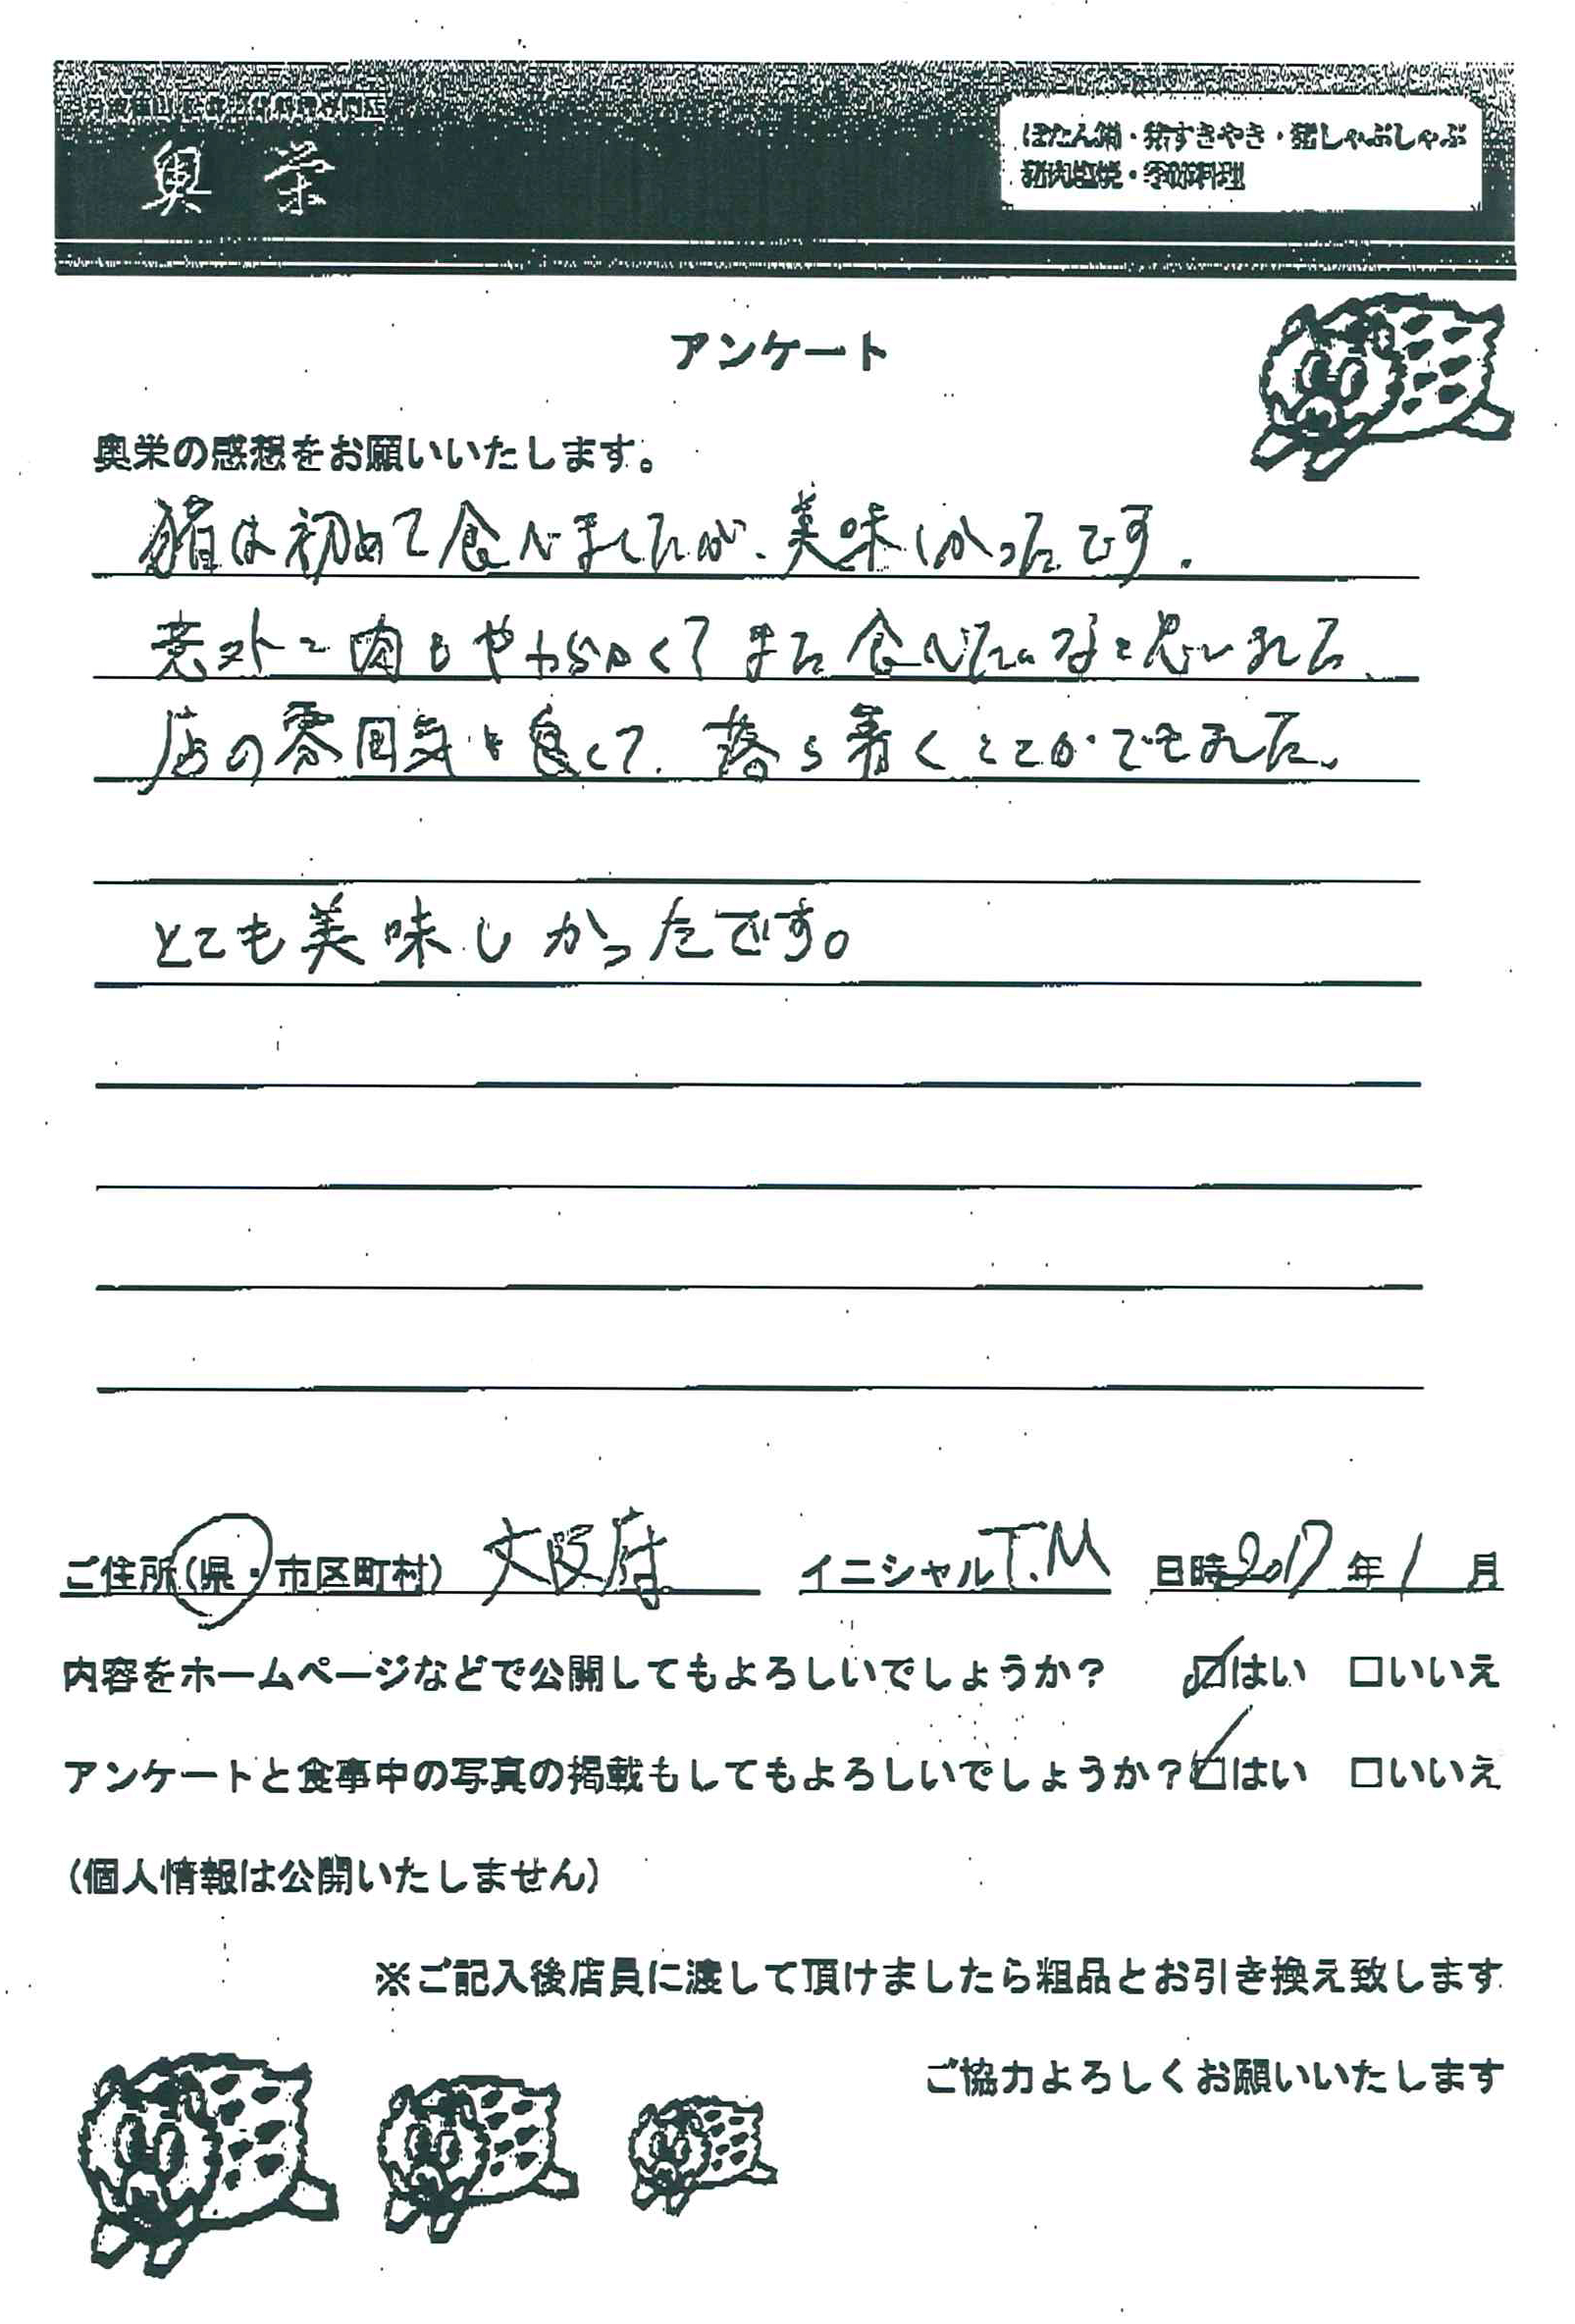 奥栄
ぼたん鍋・猪すきやき・猪しゃぶしゃぶ
猪肉塩焼・季節料理
アンケート
奥栄の感想をお願いいたします。
猪は初めて食べましたが、美味しかったです.
意外と肉もやわらかくてまた食べたいなと思いました、
店の雰囲気も良くて、落ち着くことができました。
とても美味しかったです。
ご住所(県・市区町村) 大阪府 イニシャル T.M 日時 2017年1月
内容をホームページなどで公開してもよろしいでしょうか? ☑はい □いいえ
アンケートと食事中の写真の掲載もしてもよろしいでしょうか?☑はい □いいえ
(個人情報は公開いたしません)
※ご記入後店員に渡して頂けましたら粗品とお引き換え致します
ご協力よろしくお願いいたします